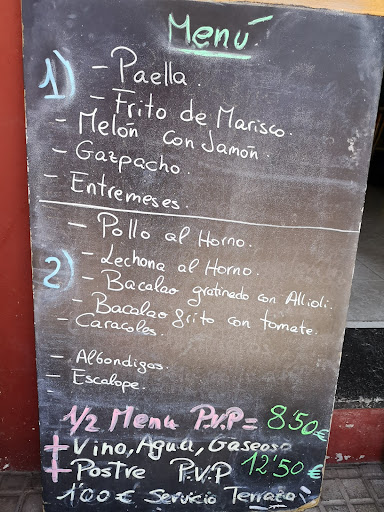 Menú
1) - Paella.
- Frito de Marisco.
- Melón con Jamón.
- Gazpacho.
- Entremeses.
- Pollo al Horno.
2) - Lechona al Horno.
- Bacalao gratinado con Allioli.
- Bacalao frito con tomate.
- Caracoles.
- Albondigas.
- Escalope.
1/2 Menu P.V.P = 8'50€
+ Vino, Agua, Gaseosa
+ Postre P.V.P 12'50€
1'00€ Servicio Terraza